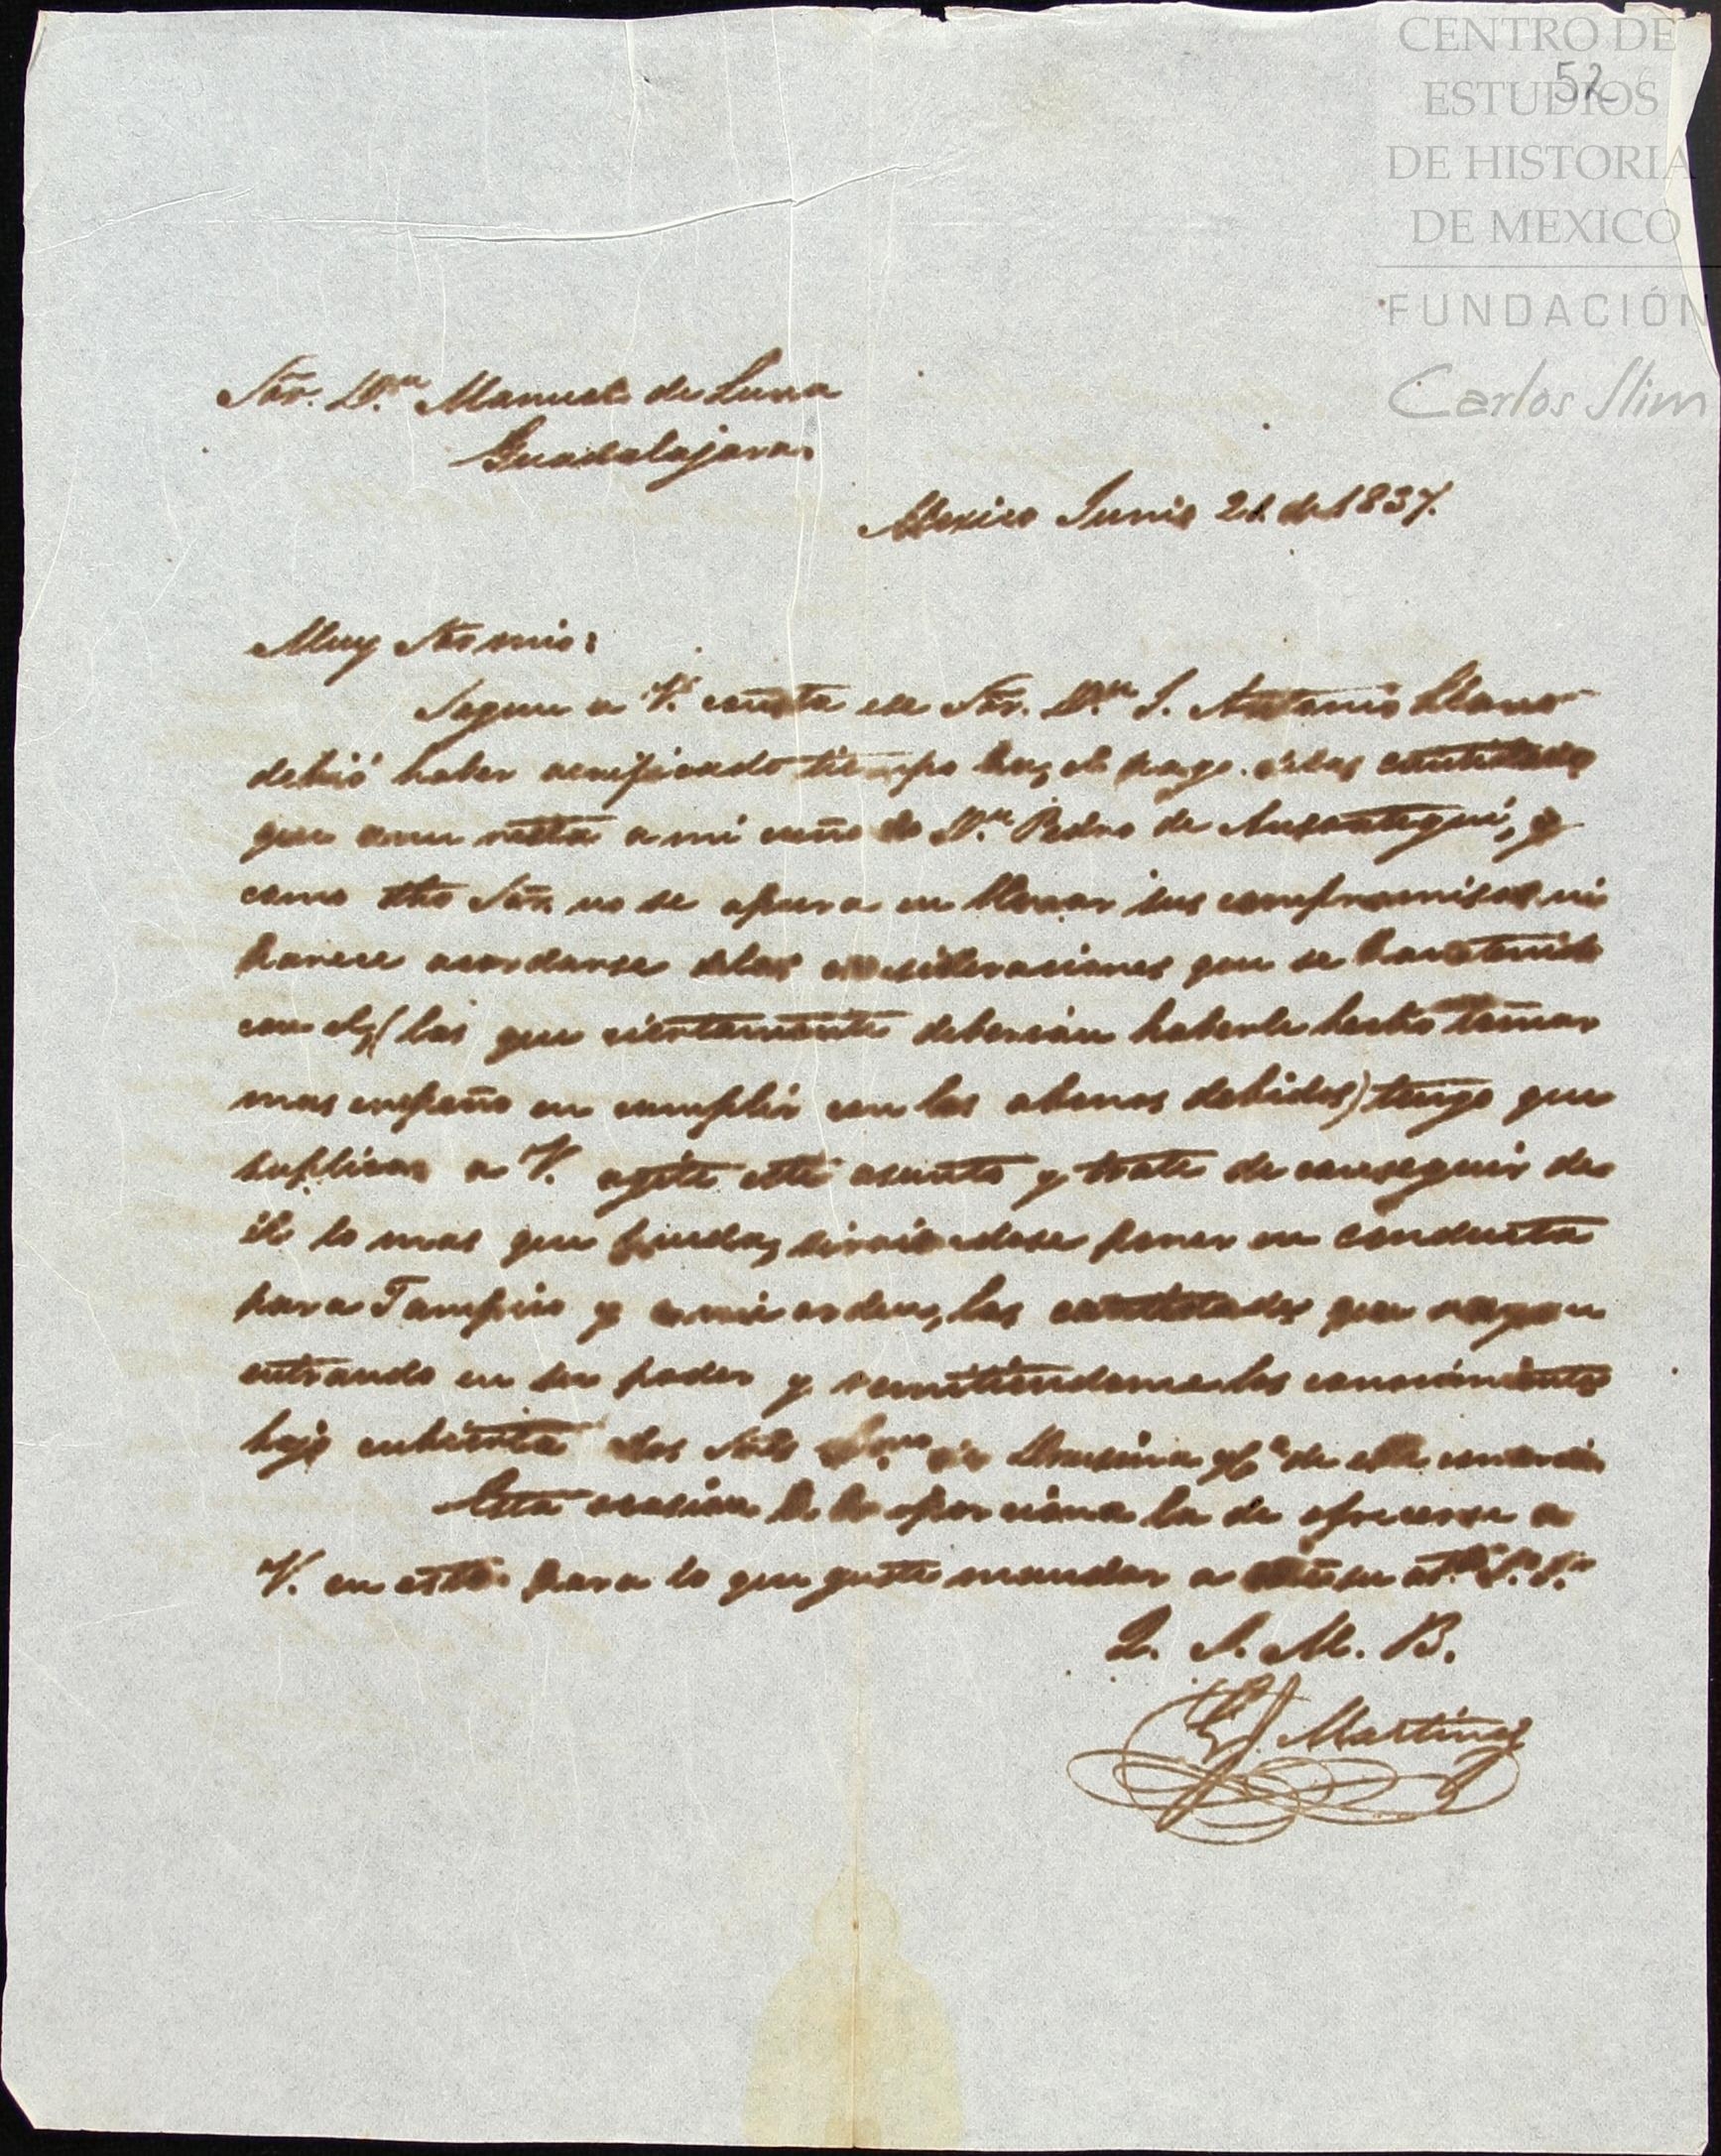 CENTRO DE
ESTUDIOS
DE HISTORIA
DE MEXICO
FUNDACIÓN
Carlos Slim
52
Sõr. Dn. Manuel de Luna
Guadalajara
Mexico Junio 21. de 1837.
Muy Sõr mio:
Segun a V. consta ese Sõr. Dn. J. Antonio Llano
debió haber verificado tiempo ha, el pago delas cantidades
que aun resta a mi cuñado Dn. Pedro de Ansoategui, y
como dho Sõr. no se apura en llenar sus compromisos ni
parece acordarse delas consideraciones que se han tenido
con el, (las que ciertamente deberian haberle hecho tomar
mas empeño en cumplir con los abonos debidos) tengo que
suplicar a V. agite este asunto y trate de conseguir de
él lo mas que pueda, sirviendose poner en conducta
para Tampico y a mi orden, las cantidades que vayan
entrando en su poder y remitiendome los conocimientos
bajo cubierta delos Sres de Drusina y Ca. de este comercio
Esta ocasion le proporciona la de ofrecerse a
V. en esta para lo que guste mandar a su at. S. S.
Q. S. M. B.
Martinez